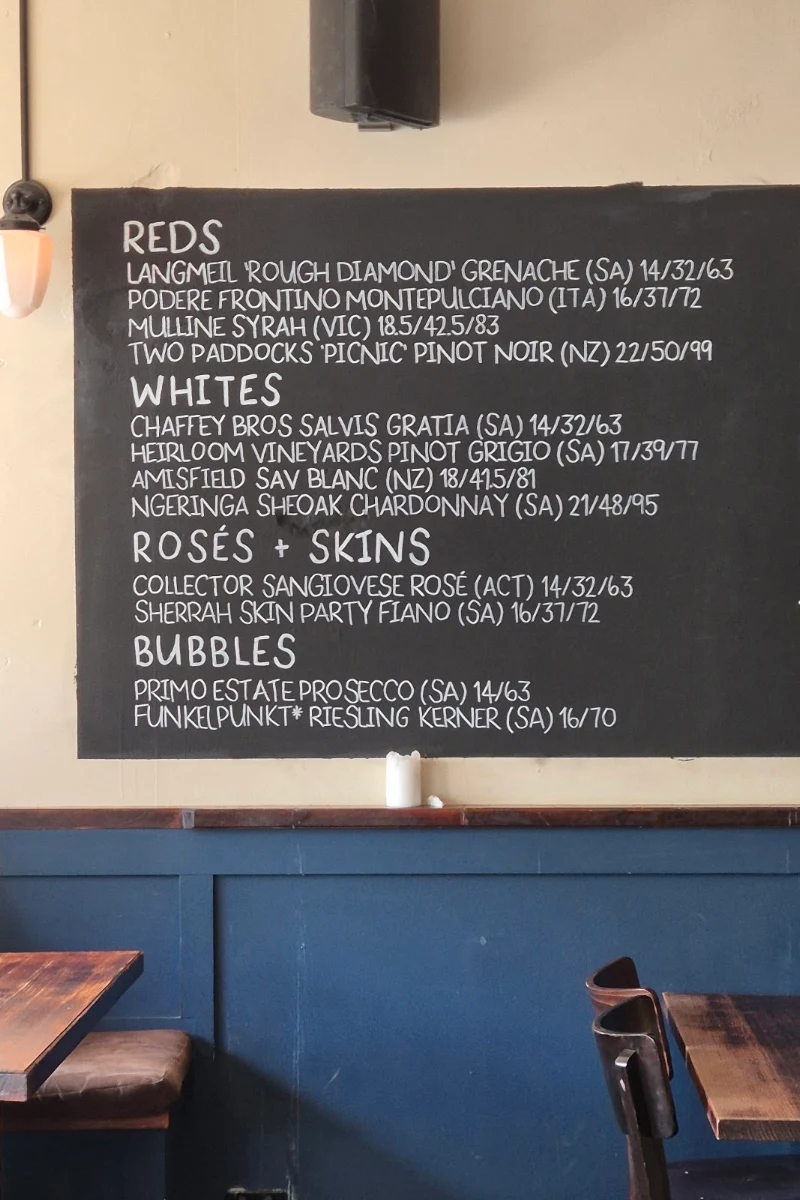 REDS
LANGMEIL 'ROUGH DIAMOND' GRENACHE (SA) 14/32/63
PODERE FRONTINO MONTEPULCIANO (ITA) 16/37/72
MULLINE SYRAH (VIC) 18.5/42.5/83
TWO PADDOCKS 'PICNIC' PINOT NOIR (NZ) 22/50/99
WHITES
CHAFFEY BROS SALVIS GRATIA (SA) 14/32/63
HEIRLOOM VINEYARDS PINOT GRIGIO (SA) 17/39/77
AMISFIELD SAV BLANC (NZ) 18/41.5/81
NGERINGA SHEOAK CHARDONNAY (SA) 21/48/95
ROSÉS + SKINS
COLLECTOR SANGIOVESE ROSÉ (ACT) 14/32/63
SHERRAH SKIN PARTY FIANO (SA) 16/37/72
BUBBLES
PRIMO ESTATE PROSECCO (SA) 14/63
FUNKELPUNKT* RIESLING KERNER (SA) 16/70